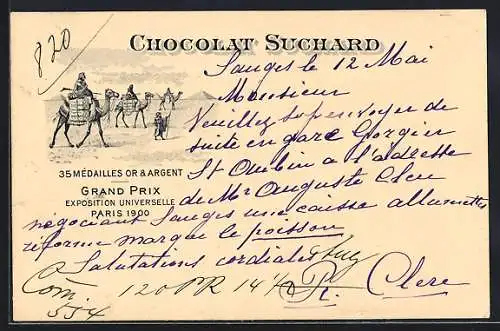 820
CHOCOLAT SUCHARD
Sauges le 12 Mai
Monsieur
Veuillez svp envoyer de
suite en gare Gorgier
St Aubin a l'adresse
de Mr Auguste Clerc
négociant Sauges une caisse allumettes
réforme marque le poisson
Salutations cordiales
Clerc
35 MÉDAILLES OR & ARGENT
GRAND PRIX
EXPOSITION UNIVERSELLE
PARIS 1900
Com.
554
120